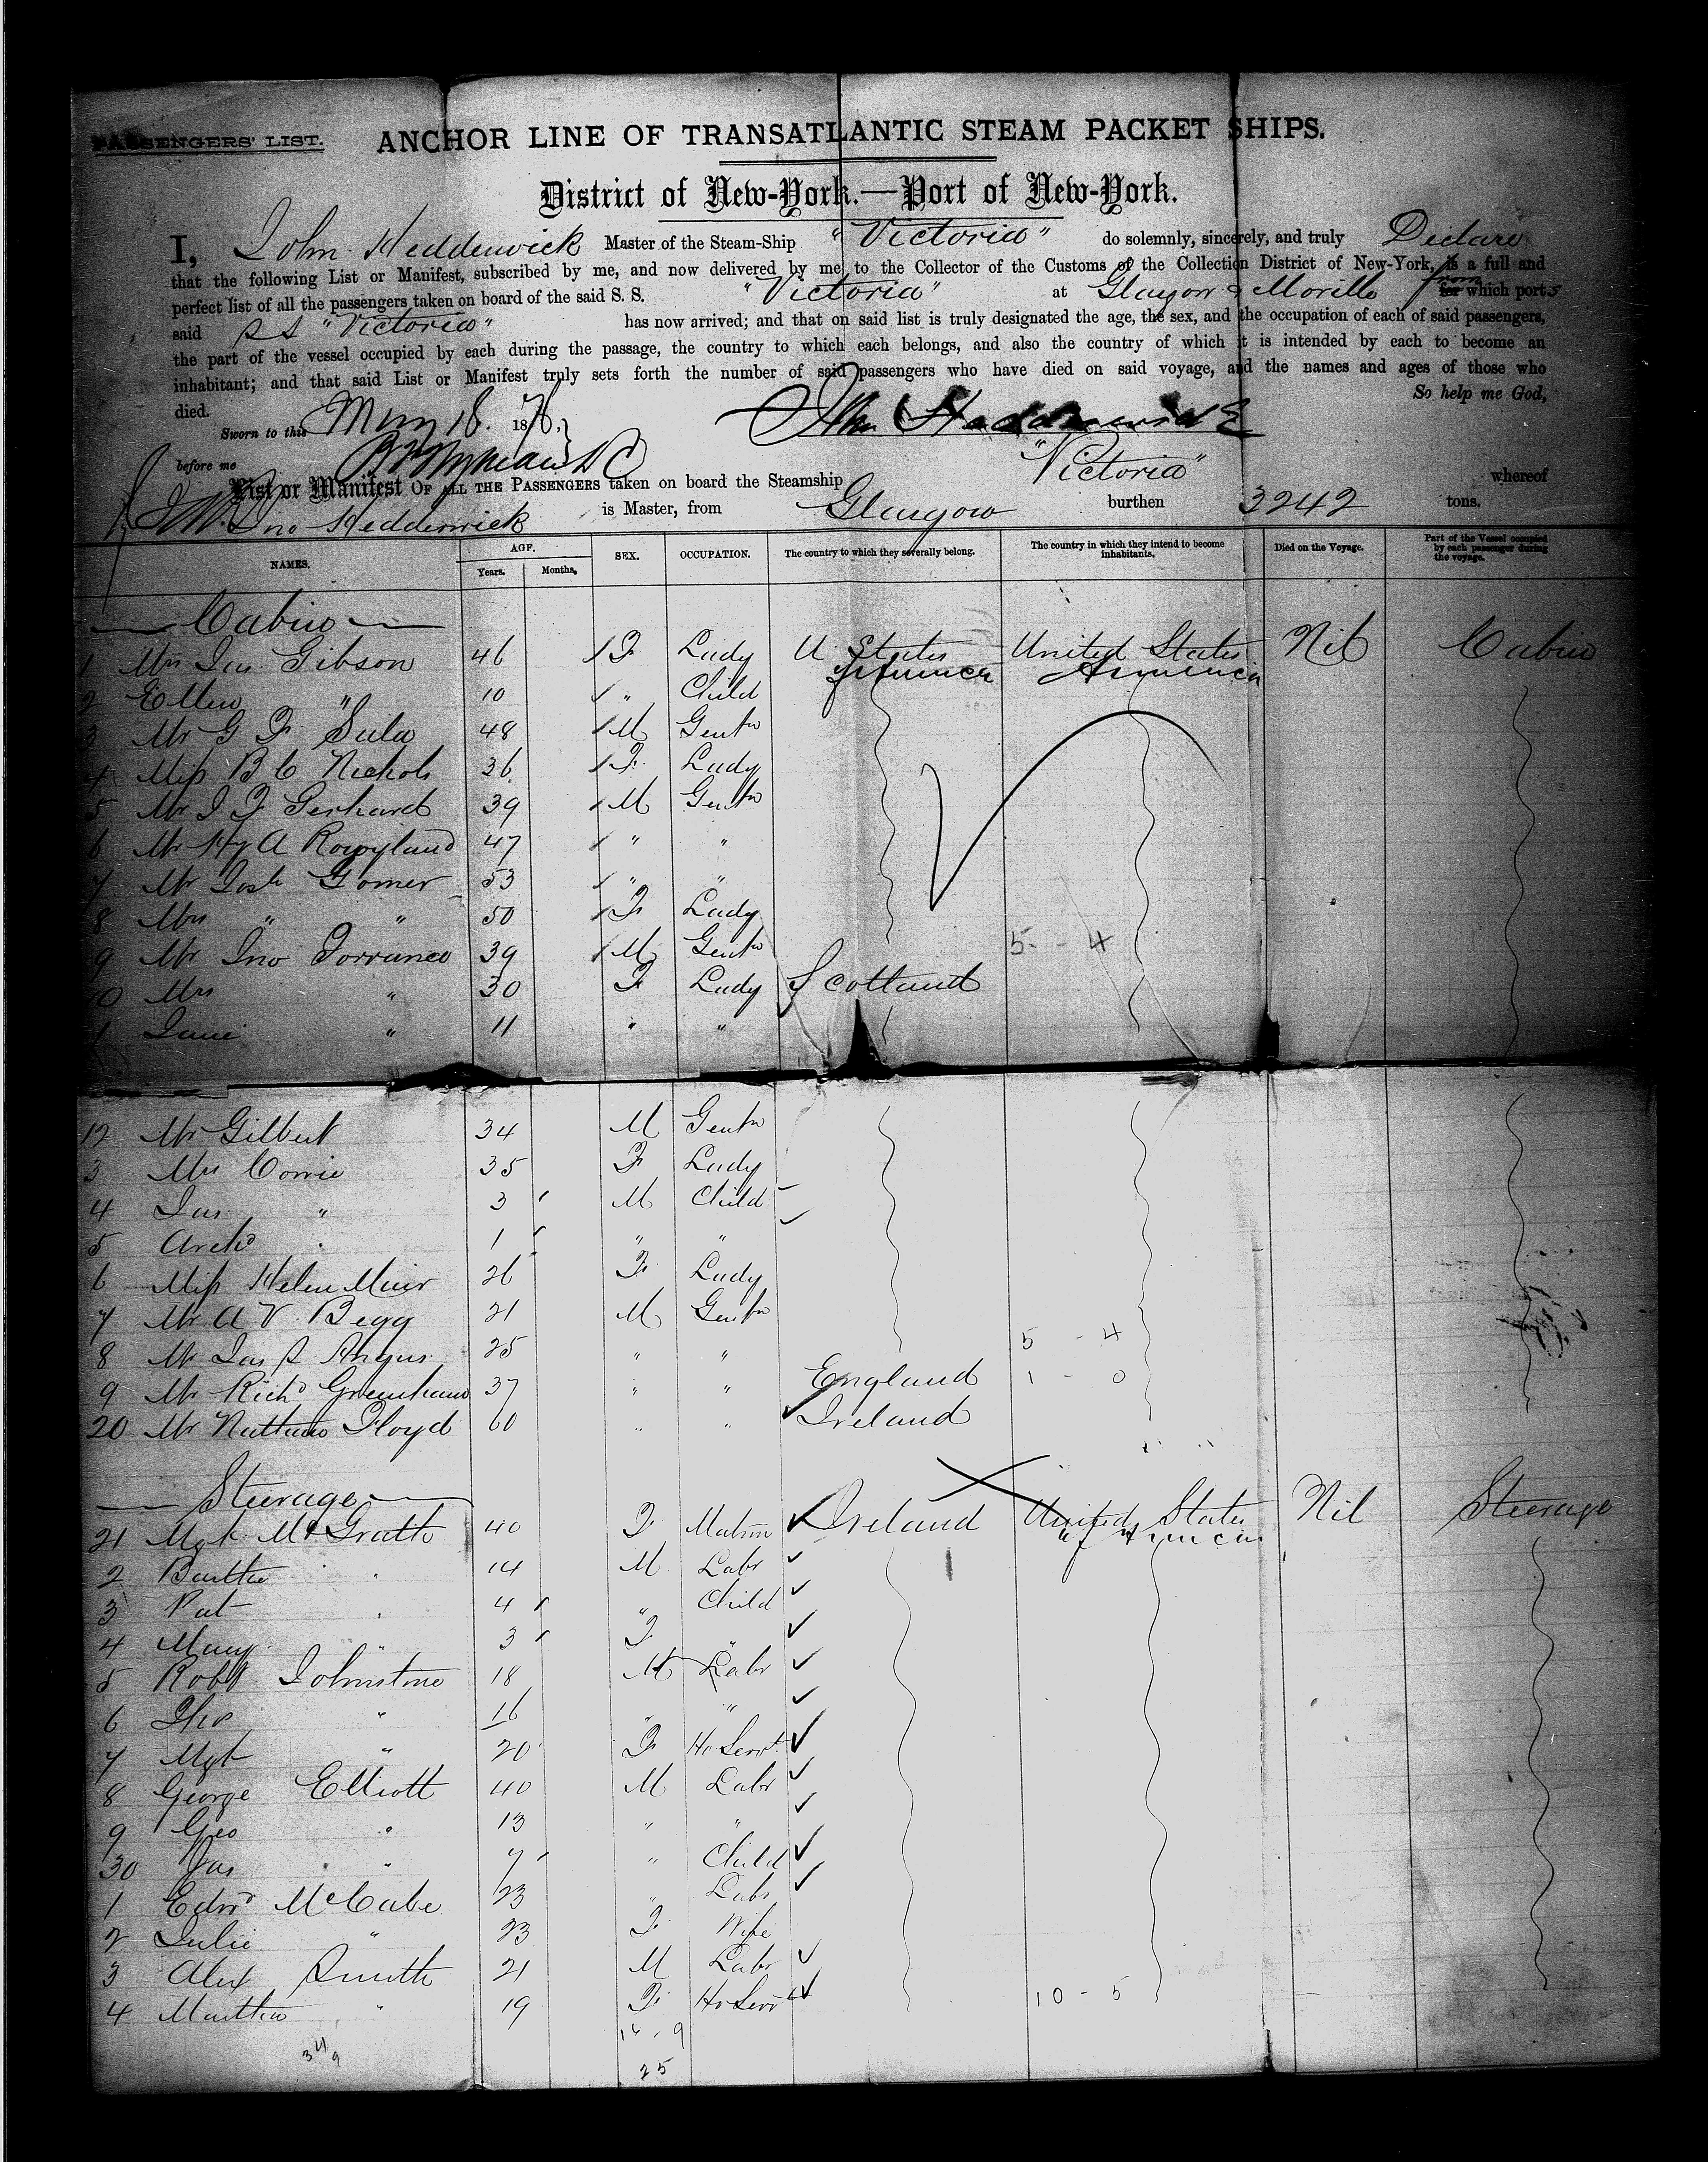 PASSENGERS' LIST.
ANCHOR LINE OF TRANSATLANTIC STEAM PACKET SHIPS.
District of New-York.—Port of New-York.
I, John Hedderwick Master of the Steam-Ship "Victoria" do solemnly, sincerely, and truly Declare
that the following List or Manifest, subscribed by me, and now delivered by me to the Collector of the Customs of the Collection District of New-York, is a full and
perfect list of all the passengers taken on board of the said S. S. "Victoria" at Glasgow & Moville from for which ports
said SS "Victoria" has now arrived; and that on said list is truly designated the age, the sex, and the occupation of each of said passengers,
the part of the vessel occupied by each during the passage, the country to which each belongs, and also the country of which it is intended by each to become an
inhabitant; and that said List or Manifest truly sets forth the number of said passengers who have died on said voyage, and the names and ages of those who
died. So help me God,
Sworn to this May 18. 1876. John Hedderwick
before me
List or Manifest OF ALL THE PASSENGERS taken on board the Steamship "Victoria" whereof
Jno Hedderwick is Master, from Glasgow burthen 3242 tons.
NAMES. AGE. Years. Months. SEX. OCCUPATION. The country to which they severally belong. The country in which they intend to become inhabitants. Died on the Voyage. Part of the Vessel occupied by each passenger during the voyage.
Cabin
1 Mrs Jas Gibson 46 F Lady U. States of America United States America Nil Cabin
2 Ellen " 10 " Child
3 Mr G F Sula 48 M Gentn
4 Miss B C Nichols 26 F Lady
5 Mr J F Gerhard 39 M Gentn
6 Mr Hy A 47 " "
7 Mr Josh Gomer 53 " "
8 Mrs " " 50 F Lady
9 Mr Jno Torrance 39 M Gentn 5 - 4
10 Mrs " 30 F Lady Scotland
1 Jane " 11 " "
12 Mr Gilbert 34 M Gentn
3 Mrs Corrie 35 F Lady
4 Jas " 3 M Child
5 Archd " 1 " "
6 Miss Helen Muir 26 F Lady
7 Mr A V Begg 21 M Gentn
8 Mr Jas S Angus 25 " " 5 - 4
9 Mr Richd Greenham 37 " " England 1 - 0
20 Mr Nathan Floyd 60 " " Ireland
Steerage
21 Mgt McGrath 40 F Matron Ireland United States of America Nil Steerage
2 " 14 M Labr
3 Pat " 4 " Child
4 Mary " 3 F "
5 Robt Johnstone 18 M Labr
6 Thos " 16 " "
7 Mgt " 20 F Ho Servt
8 George Elliott 40 M Labr
9 Geo " 13 " "
30 Jas " 7 " Child
1 Edwd McCabe 23 " Labr
2 Julie " 23 F Wife
3 Alex Smith 21 M Labr
4 Martha " 19 F Ho Servt 10 - 5
16 . 9
25